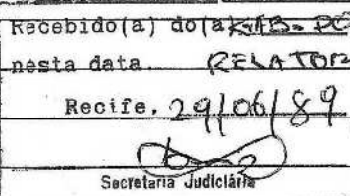 Recebido(a) do(a GAB. DO
nesta data. RELATOR
Recife, 29/06/89
Secretaria Judiciária